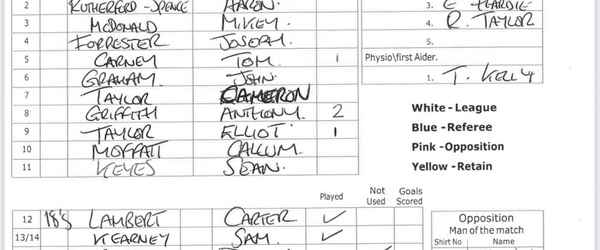 2 RUTHERFORD-SPENCE AARON 3. E HARDIE
3 McDONALD MIKEY. 4. R. TAYLOR
4 FORRESTER JOSEPH. 5.
5 CARNEY TOM. 1 Physio\first Aider.
6 GRAHAM. JOHN 1. T. KELLY
7 TAYLOR CAMERON
8 GRIFFITH ANTHONY. 2 White -League
9 TAYLOR ELLIOT. 1 Blue -Referee
10 MOFFATT CALLUM. Pink -Opposition
11 KEYES SEAN. Yellow -Retain
Played Not Used Goals Scored
12 18's LAMBERT CARTER ✓ Opposition
13/14 KEARNEY SAM. ✓ Man of the match
Shirt No Name